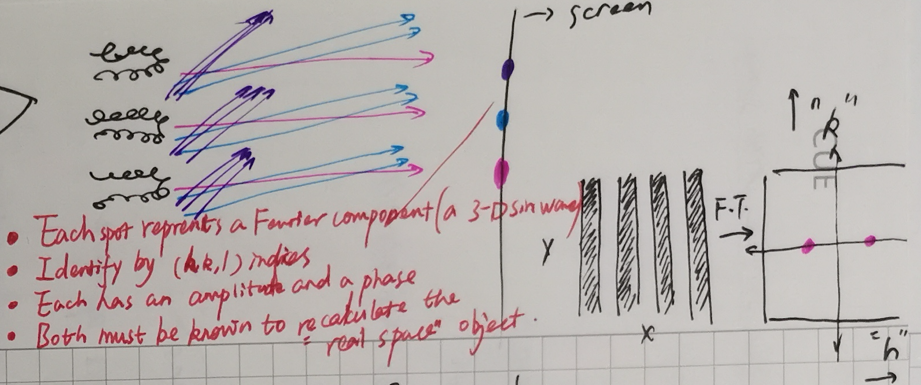 → screen
"k"
CUE
• Each spot reprents a Fourier component (a 3-D sin wave)
F.T.
y
• Identify by (h,k,l) indies
• Each has an amplitude and a phase
• Both must be known to recalculate the
"real space" object.
x
"h"